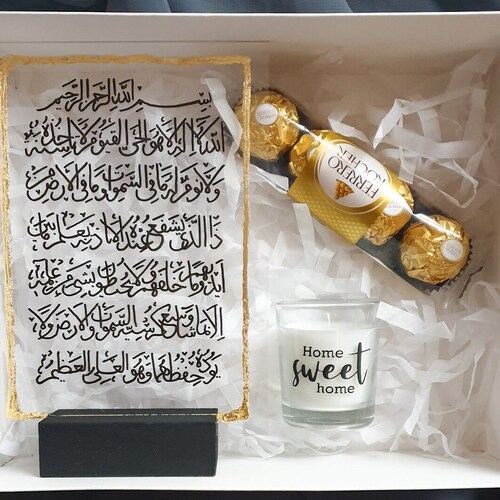 بسم الله الرحمن الرحيم
الله لا إله إلا هو الحي القيوم لا تأخذه سنة
ولا نوم له ما في السموات وما في الأرض من
ذا الذي يشفع عنده إلا بإذنه يعلم ما بين
أيديهم وما خلفهم ولا يحيطون بشيء من علمه
إلا بما شاء وسع كرسيه السموات والأرض ولا
يؤده حفظهما وهو العلي العظيم
FERRERO
ROCHER
Home
sweet
home